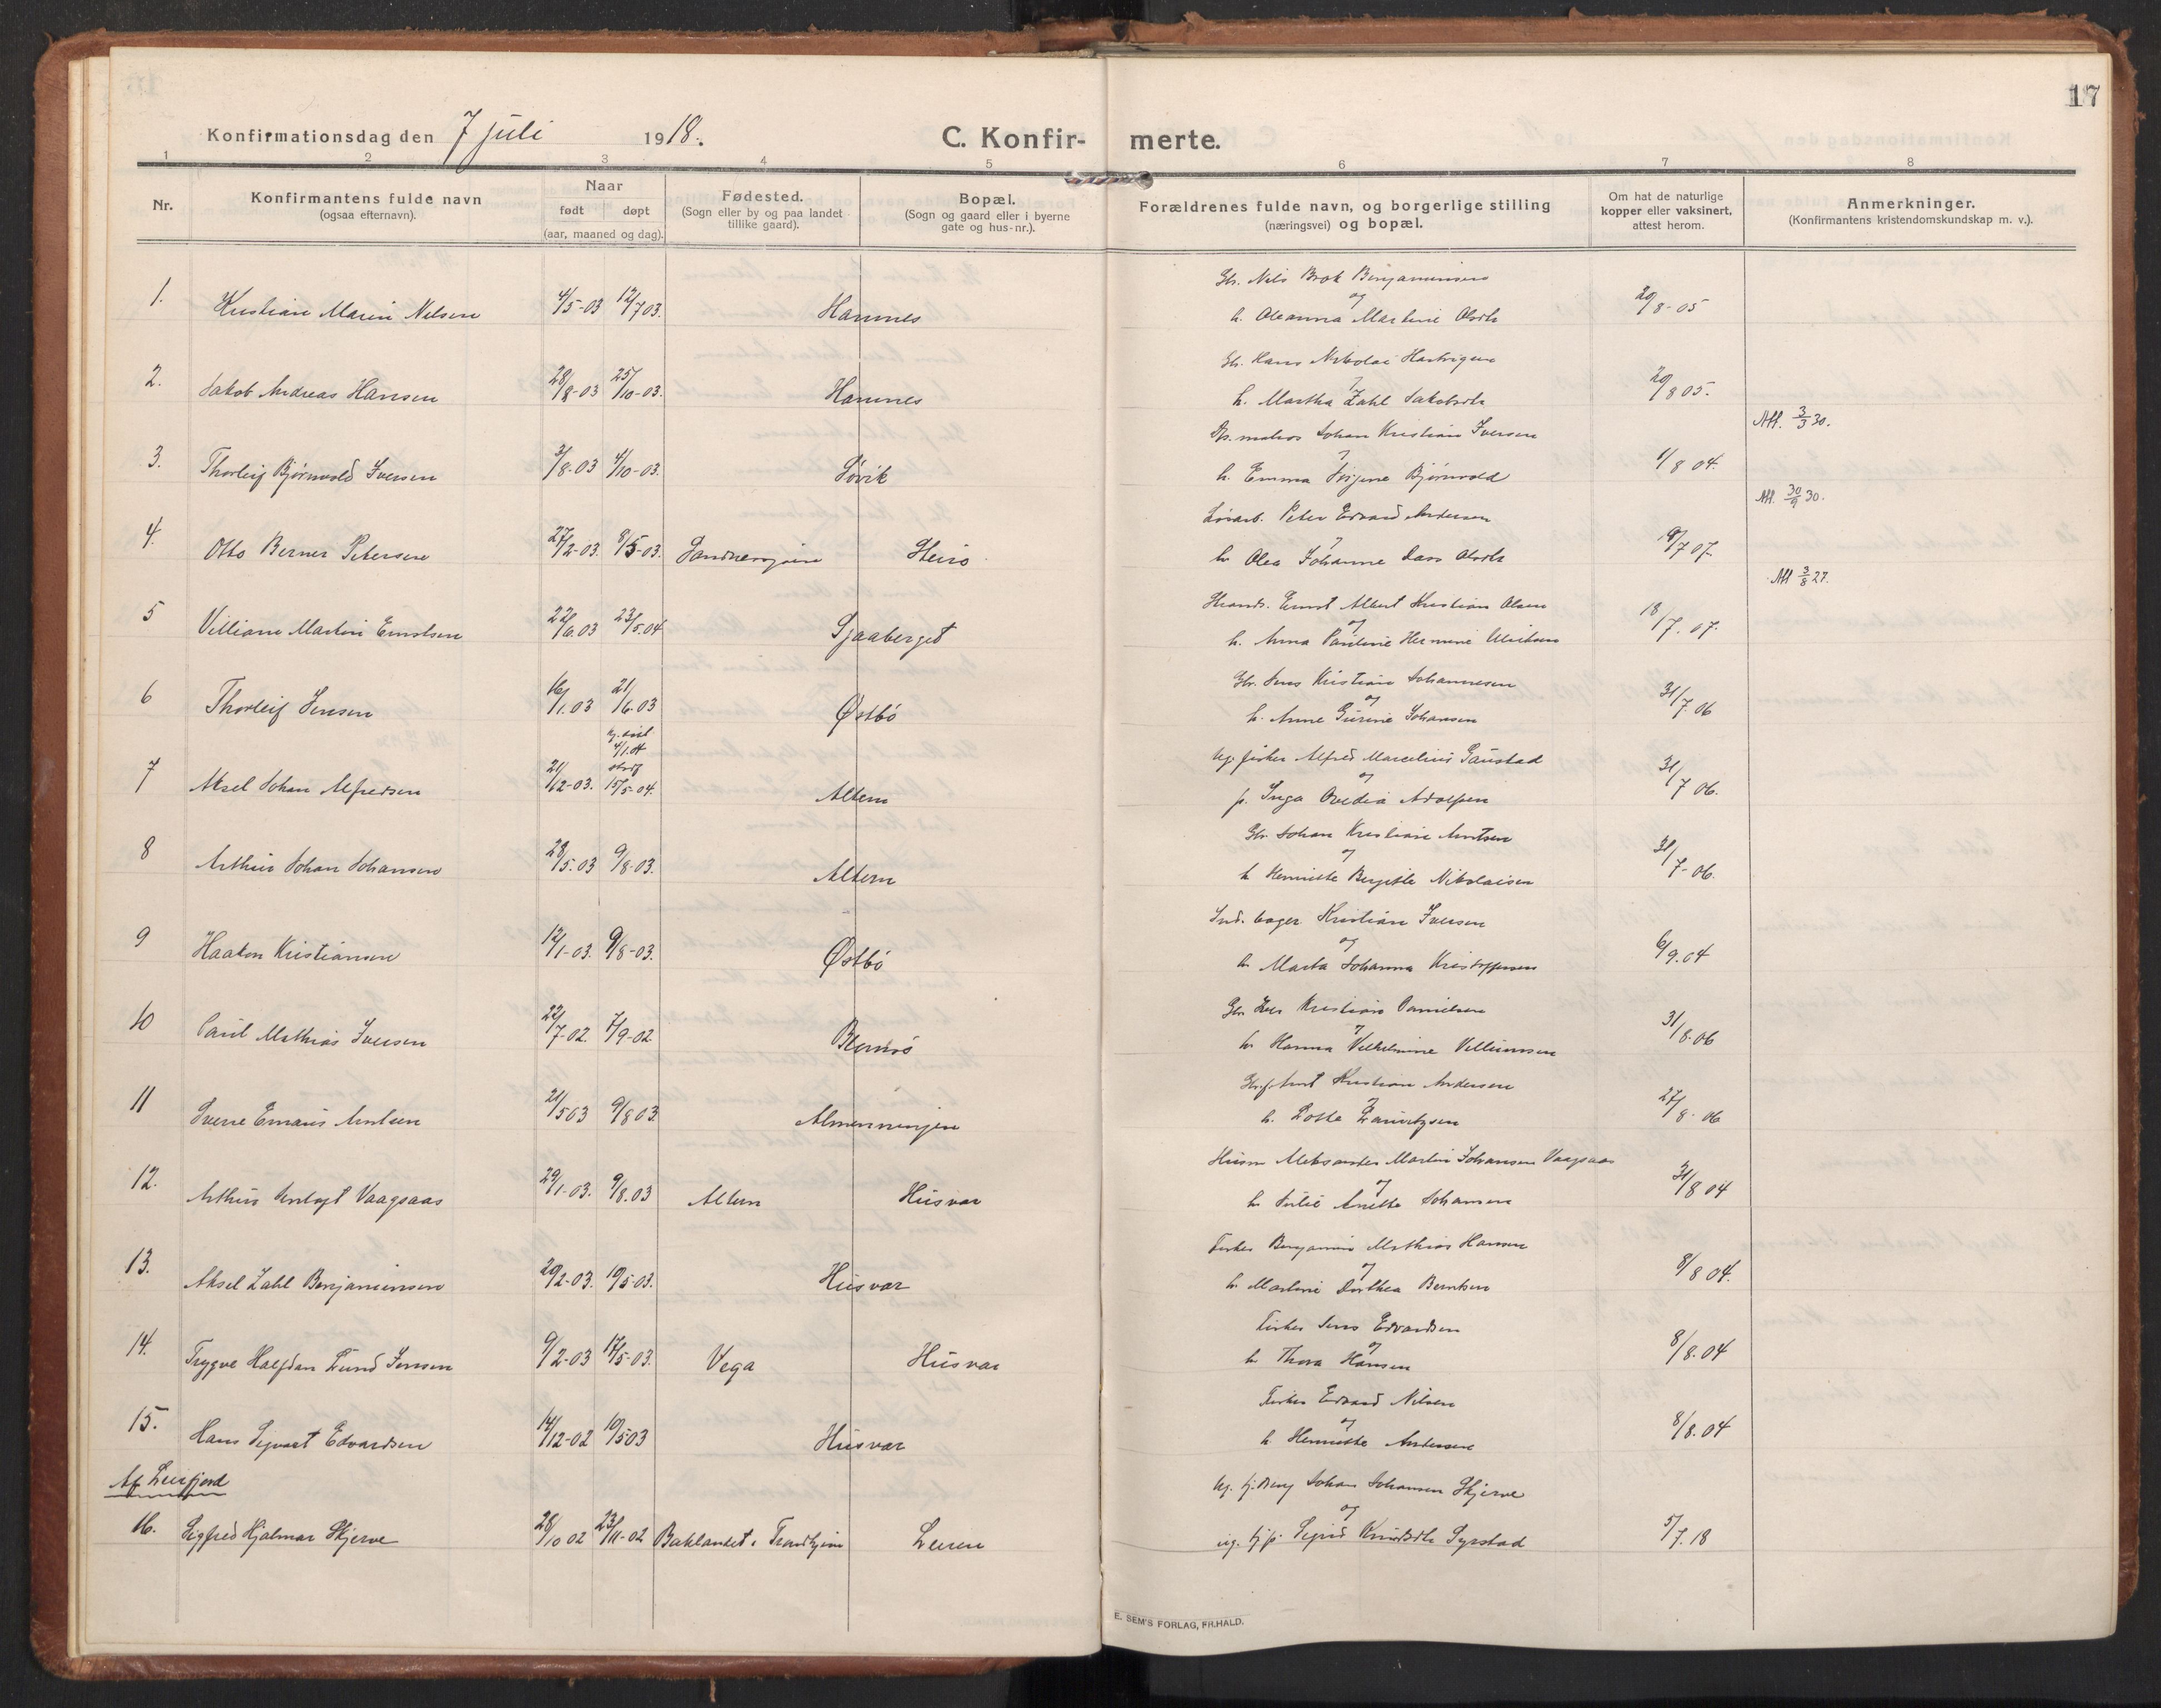 17
Konfirmationsdag den 7 juli 1918.
C. Konfirmerte.
1 2 3 4 5 6 7 8
Nr.
Konfirmantens fulde navn
(ogsaa efternavn).
Naar
født døpt
(aar, maaned og dag).
Fødested.
(Sogn eller by og paa landet
tillike gaard).
Bopæl.
(Sogn og gaard eller i byerne
gate og hus-nr.).
Forældrenes fulde navn, og borgerlige stilling
(næringsvei) og bopæl.
Om hat de naturlige
kopper eller vaksinert,
attest herom.
Anmerkninger.
(Konfirmantens kristendomskundskap m. v.).
Gbr. Nils Brok Benjaminsen
og
1. Kristian Marin Nilsen 4/5-03 12/7 03. Hamnes h. Oleanna Martine Olsdtr 20/8-05
Gbr. Hans Nikolai Hartvigsen
2. Jakob Andreas Hansen 28/8-03 25/10-03. Hamnes h. Martha Zahl Jakobsdtr 20/8 05.
Att. 3/3 30.
Johan Kristian Iversen
3. Thorleif Bjørnvold Iversen 3/8-03 4/10-03. Søvik h. Emma Bjørnvold 1/8 04.
Att. 30/9 30.
Løsarb. Peter Edvard Andersen
4. Otto Berner Petersen 27/2-03. 8/5-03. Sandnessjøen h. Olea Johanne Dass Olsdtr 18/7 07.
Att 3/8 27.
Ernst Albert Kristian Olsen
og
5 Villiam Martin Ernstsen 22/6.03 23/5.04 h. Anna Pauline Hermine 18/7. 07.
Gbr. Jens Kristian Johannesen
og
6 Thorleif Jensen 16/1.03 21/6.03 Østbö h. Anne Gurine Johansen 31/7. 06
4/1.04
Ug. fisker Alfred Marcelius Gaustad
og
7 Aksel Johan Alfredsen 21/12-03. 15/5-04. Altern p. Inga Ovedia Adolfsen 31/7 06.
Gbr Johan Kristian Arntsen
og
8 Arthur Johan Johansen 28/5.03 9/8-03. Altern h Henriette Bergitte Nikolaisen 31/7-06.
Kristian Iversen
og
9 Haakon Kristiansen 12/1-03. 9/8-03. Østbö h. Marta Johanna Kristoffersen 6/9.04
Gbr Iver Kristian Danielsen
10 Paul Mathias Iversen 22/7-02. 7/9-02 h. Hanna Vilhelmine Villumsen 31/8.06
Arnt Kristian Andersen
11 Sverre Emaus Arntsen 21/5 03 9/8 03. Almenningen h. Lotte Lauritzsen 27/8-06
Husm Aleksander Martin Johansen Vaagsaas
og
12. Arthur Vaagsaas 29/1-03. 9/8.03 Altern Husvær h. Julie Anette Johansen 31/8 04
Fisker Benjamin Mathias Hansen
og
13. Aksel Zahl Benjaminsen 20/2-03. 10/5-03. Husvær h. Martine Dorthea Berntsen 8/8 04.
Fisker Jens Edvardsen
og
14. Trygve Halfdan Lund Jensen 9/2-03 17/5-03. Vega Husvær h Thora Hansen 8/8.04
Fisker Edvard Nilsen
og
15. Hans Sigvart Edvardsen 14/12-02 10/5 03 Husvær h Henriette Andersen 8/8.04
Af Leirfjord
Ug. Johan Johansen Skjerve
og
16. Sigfred Hjalmar Skjerve 28/10 02 23/11-02 Baklandet i Trondhjem Leiren ug. Sigrid Knudsdtr Syrstad 5/7.18
E. SEM'S FORLAG, FR.HALD.